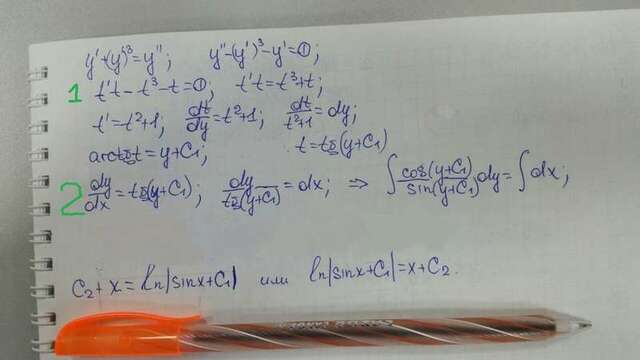 y'+(y')³=y''; y''-(y')³-y'=0;
1 t't-t³-t=0; t't=t³+t;
t'=t²+1; dt/dy=t²+1; dt/t²+1=dy;
arctgt=y+C₁; t=tg(y+C₁)
2 dy/dx=tg(y+C₁); dy/tg(y+C₁)=dx; ⇒ ∫cos(y+C₁)/sin(y+C₁)dy=∫dx;
C₂+x=ln|sinx+C₁| или ln|sinx+C₁|=x+C₂.